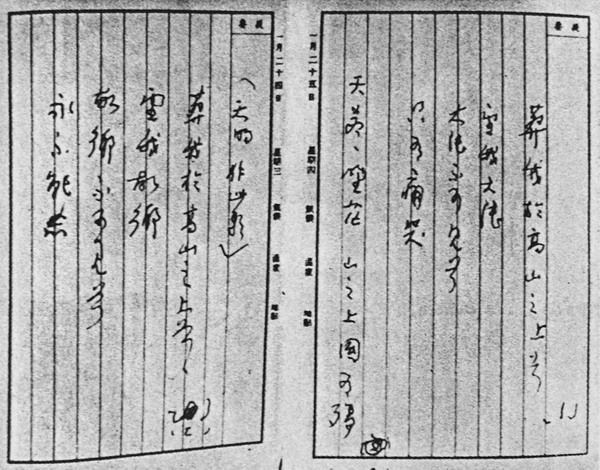 提要
葬我於高山之上兮
望我大陸
大陸不可見兮
只有痛哭
天蒼〻野茫〻山之上國有殤
一月二十五日 星期四 氣候 溫度 地點
一月二十四日 星期三 氣候 溫度 地點
提要
（天明作此歌）
葬我於高山之上兮
望我故鄉
故鄉不可見兮
永不能忘